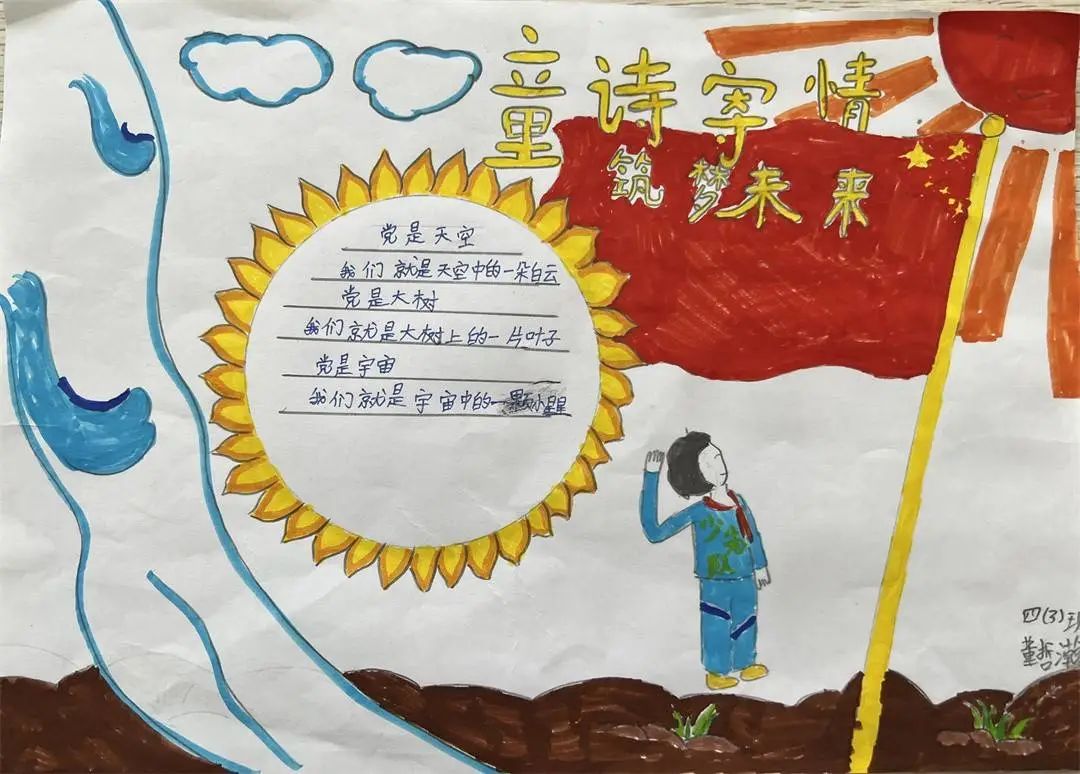 童诗寄情
筑梦未来
党是天空
我们就是天空中的一朵白云
党是大树
我们就是大树上的一片叶子
党是宇宙
我们就是宇宙中的一颗小星星
少先队
四(3)班
董哲瀚